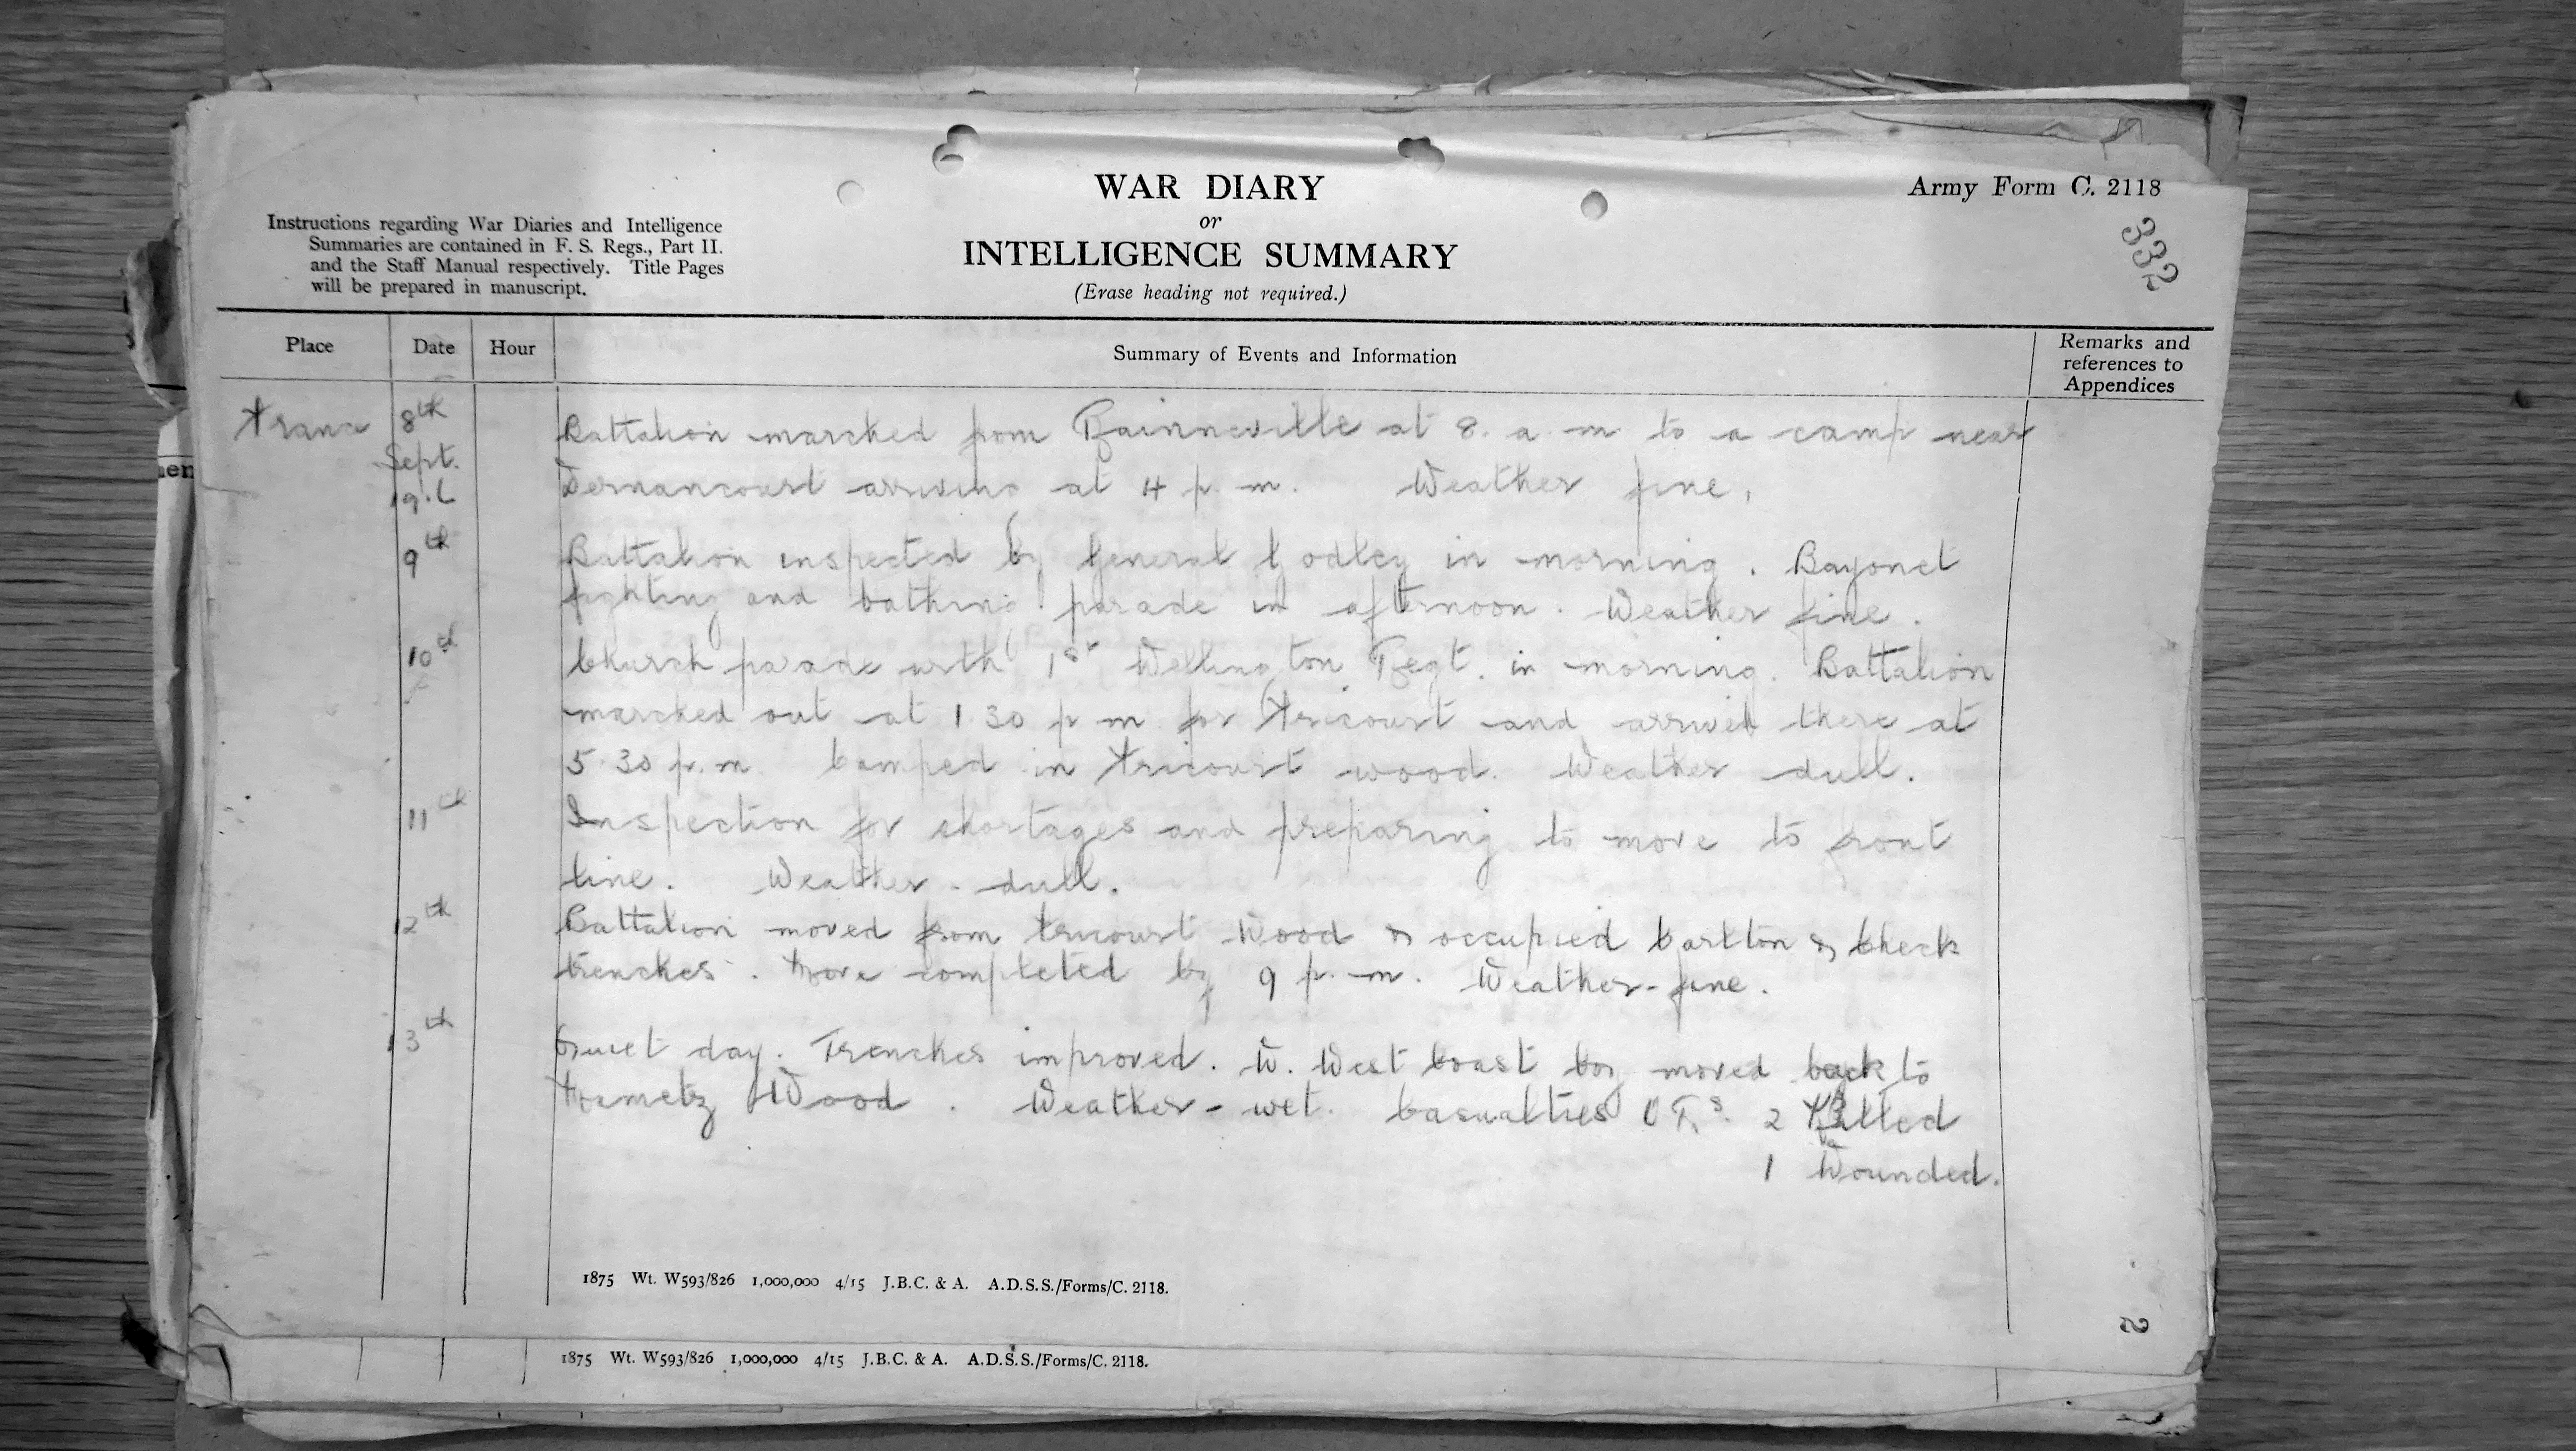 WAR DIARY
or
INTELLIGENCE SUMMARY
(Erase heading not required.)
Army Form C. 2118
332
Instructions regarding War Diaries and Intelligence
Summaries are contained in F. S. Regs., Part II.
and the Staff Manual respectively. Title Pages
will be prepared in manuscript.
Place Date Hour Summary of Events and Information Remarks and
references to
Appendices
France 8th Battalion marched from Rainneville at 8. a. m to a camp near
Sept.
Dernancourt arriving at 4 p. m. Weather fine.
9th Battalion inspected by General Godley in morning. Bayonet
fighting and bathing parade in afternoon. Weather fine.
10th Church parade with 1st Wellington Regt. in morning. Battalion
marched out at 1.30 p m for Fricourt and arrived there at
5.30 p.m Camped in Fricourt wood. Weather dull.
11th Inspection for shortages and preparing to move to front
line. Weather - dull.
12th Battalion moved from Fricourt Wood & occupied Carlton & Check
trenches. Move completed by 9 p. m. Weather - fine.
13th Quiet day. Trenches improved. W. West Coast Coy moved back to
Mametz Wood. Weather - wet. Casualties O Rs. 2 Killed
1 Wounded.
1875 Wt. W593/826 1,000,000 4/15 J.B.C. & A. A.D.S.S./Forms/C. 2118.
2
1875 Wt. W593/826 1,000,000 4/15 J.B.C. & A. A.D.S.S./Forms/C. 2118.